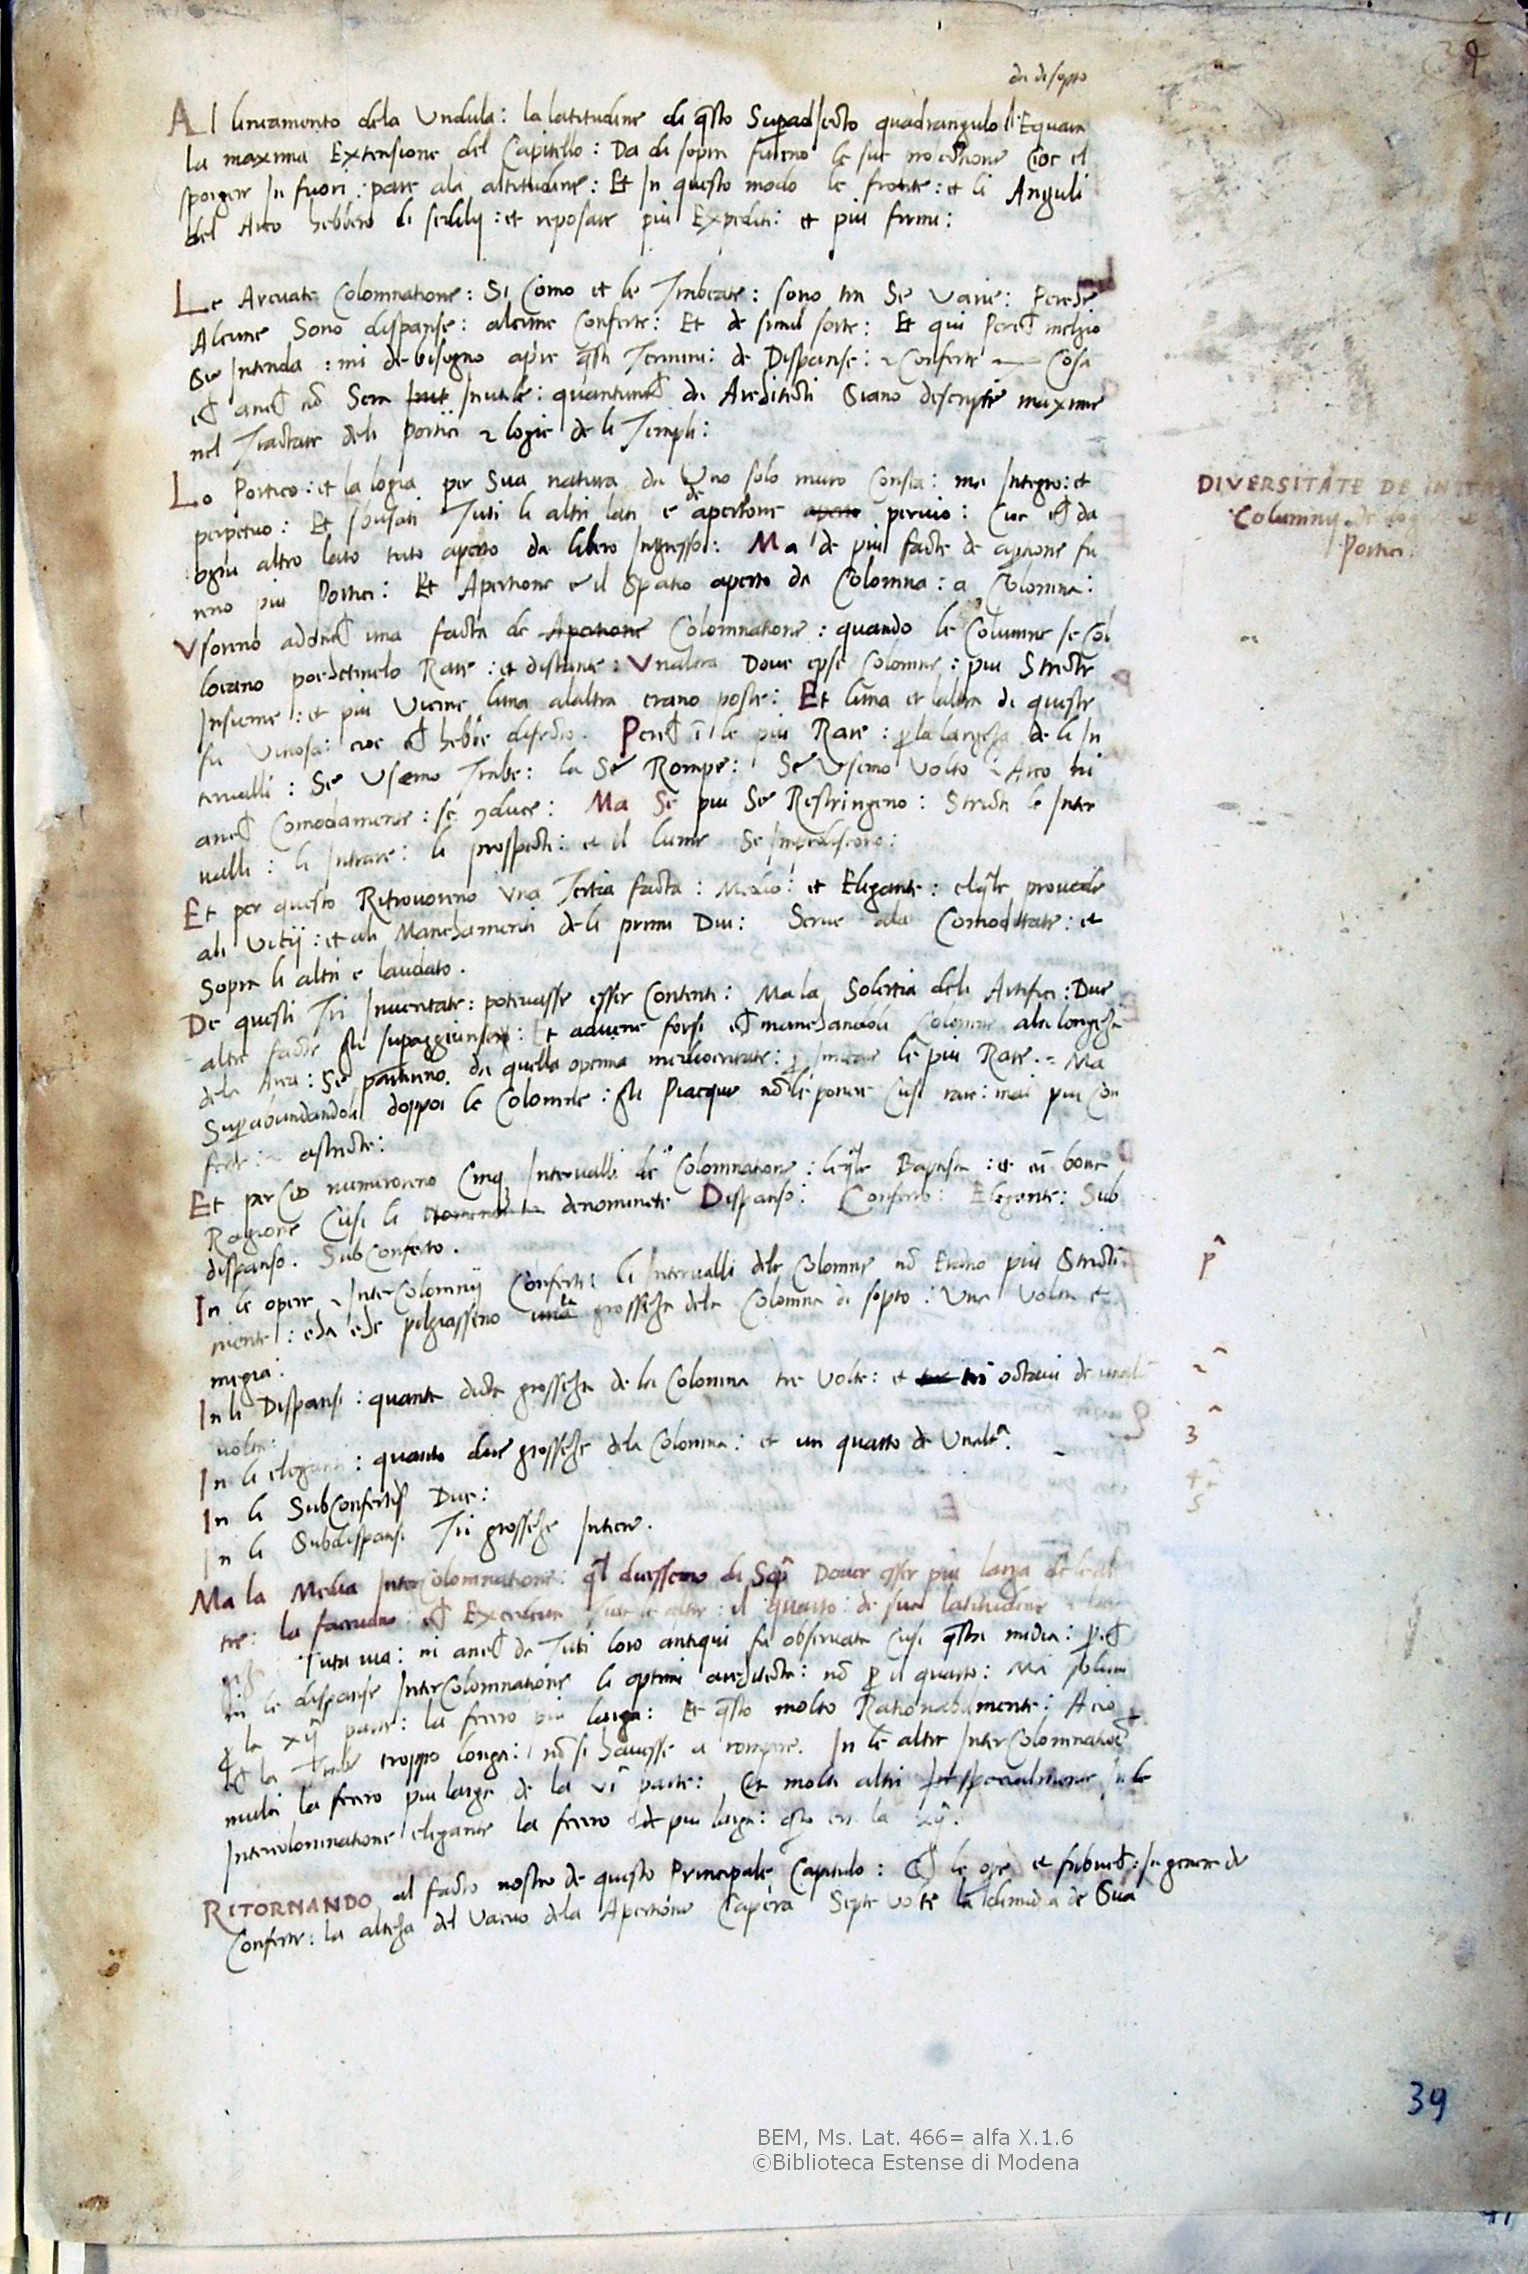 39
da di sopto
Al lineamento dela Undula: la latitudine di q̃sto Supad scõto quadrangulo Equaua
la maxima Extensione del Capitello: Da di sopra fureno le sue cioe el
sporger In fuori: pare ala altitudine: Et In questo modo le fronte: et li Anguli
del Arco hebbero li sedily: et reposare piu Expediti: et piu firmi:
Le Arcuate Colomnatione: Si Como et le Trabeate: sono tra Se Varie: Perche
Alcune Sono dispanse: alcune Conferte: Et de simil sorte: Et qui Perch melgio
Se Intenda: mi de bisogno apire q̃sti Termini: de Dispanse: Conferte Cosa
ch anch nõ Sera Inutile: quantunch da Architecti Siano descripte maxime
nel Tractare deli portici logie de li Templi:
Lo Portico: et la logia per Sua natura da Uno solo muro Consta: ma Integro: et
perpetuo: Et Tuti li altri lati e de apertione pervio: Cioe ch da
ogni altro lato tuto aperto da libero Ingresso: Ma de piu facte de aptione fu
reno piu Portici: Et Apertione e il Spatio aperto da Colomna: a Colomna:
Usoreno adonch una facta de Apertione Colomnatione: quando le Columne se Col
locano poch Rare: et distante: Unaltra Dove epse Colomne: piu Stricte
Insieme: et piu Vicine luna alaltra erano poste: Et luna et laltra di queste
fu Vitiosa: cioe ch hebbe difecto. Perch ĩ le piu Rare: p la largheza de li In
tervalli: Se Usemo Trabe: la Se Rompe: Se Usemo Volto Arco ni
anch Comodamente: se duce: Ma Se piu Se Restringeno: Stricti le Inter
valli: li Intrare: li prospecti: et il lume Se Impediscono:
Et per questo Ritrovoreno Una Tertia facta: Medio: et Elegante: elq̃le provede
ali Vitij: et ali Manchamenti deli primi Dui: Serve ala Comoditate: et
Sopra li altri e laudato.
De questi Tri Inventate: potevasse esser Contenti: Ma la Solertia deli Artifici: Due
altre facte gli supaggiunseno: Et advene forsi ch manchandoli Colomne ala longheza
dela Area: Se partireno da quella optima mediocritate: p Imitare le piu Rare. Ma
Supabundandoli doppoi le Colomne: gli Piacque nõ le ponere Cusi rare: mai piu Con
ferte: astricte:
Et per Cio numeroreno Cinq Intervalli de Colomnatione: leq̃le Baptista: et cũ bone
Ragione Cusi li denominete Dispanso: Conferto: Elegante: Sub
dispanso. SubConferto.
In le opere InterColomnij Conferti: li Intervalli dele Colomne nõ Erano piu Stricti
mente: ch pilgiasseno grosseza dela Colomna di sopto: Una Volta e
megia:
In li Dispansi: quanta dicta grosseza de la Colomna tre Volte: et tri octavi de
volta:
In li eleganti: quanto due grosseze dela Colomna: et un quarto de Unaltª.
In li SubConfertis Due:
In li Subdispansi Tri grosseze Intiere.
Ma la Media InterColomnatione: q̃l dicessemo di Sop̃ Dover esser piu larga de le al
tre: la facevano: ch Excedere Tute le altre: il quarto: de sua latitudine
Tuta via: ni anch da Tuti loro antiqui fu observata Cusi q̃sta media: pch
in le dispanse InterColomnatione li optimi architecti: nõ p il quarto: Ma solum
p la xij parte: la fecero piu larga: Et q̃sto molto Rationabilmente: Acio
ch la Trabe troppo longa: nõ si havesse a rompere. In le altre InterColomnatione
multi la fecero piu larga de la vi parte: Et molti altri specialmente In le
Intercolomnatione elegante la fecero piu larga: q̃sto era la xij.
RITORNANDO al facto nostro de questo Principale Capitulo: Ch le ope et In genere de
Conferte: la alteza del Vacuo dela Apertione Capera Septe volte la dimidia de Sua
DIVERSITATE DE INTER
Columnij de logie et
Portici.
p̃
2
3
4
5
39
BEM, Ms. Lat. 466= alfa X.1.6
©Biblioteca Estense di Modena